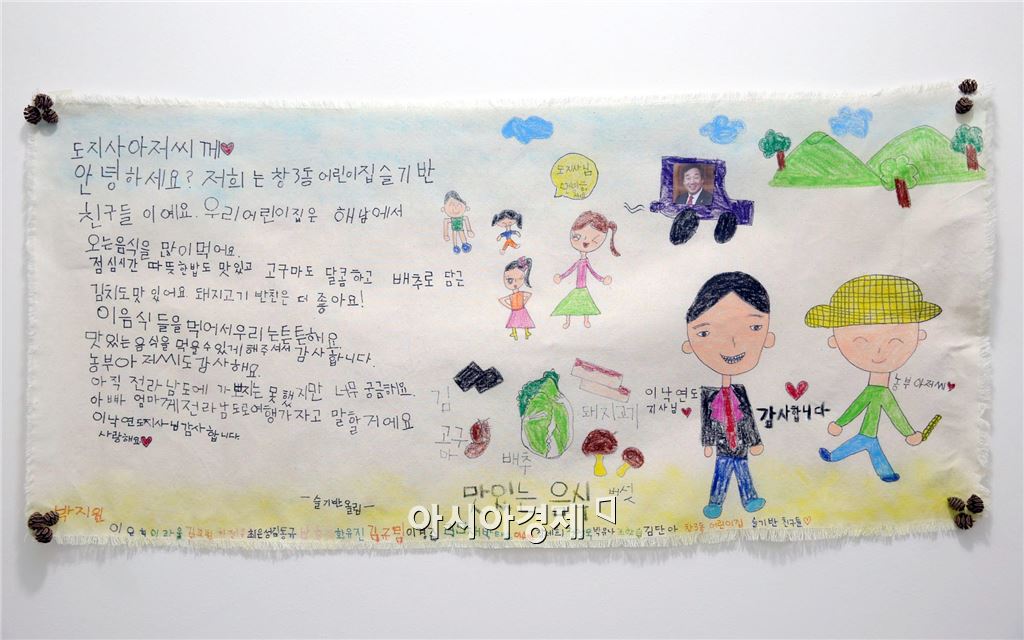 도지사아저씨께
안녕하세요? 저희는 창3동어린이집슬기반
친구들 이예요. 우리어린이집은 해남에서
오는음식을 많이먹어요.
점심시간 따뜻한밥도 맛있고 고구마도 달콤하고 배추로 담근
김치도맛 있어요 돼지고기 반찬은 더 좋아요!
이음식 들을먹어서우리는튼튼해요
맛있는 음식을 먹을수있게해주셔서 감사합니다.
농부아 저씨도감사해요.
아직 전라남도에 가보지는 못했지만 너무 궁금해요.
아빠 엄마께전라남도로여행가자고 말할거에요
이낙연도지사님감사합니다
사랑해요
-슬기반올림-
도지사님
김
고구마
배추
돼지고기
버섯
맛있는 음식
이낙연도
지사님
감사합니다
농부아저씨
박지원
최은성김동규 화유진 김단아 창3동 어린이집 슬기반 친구들
아시아경제